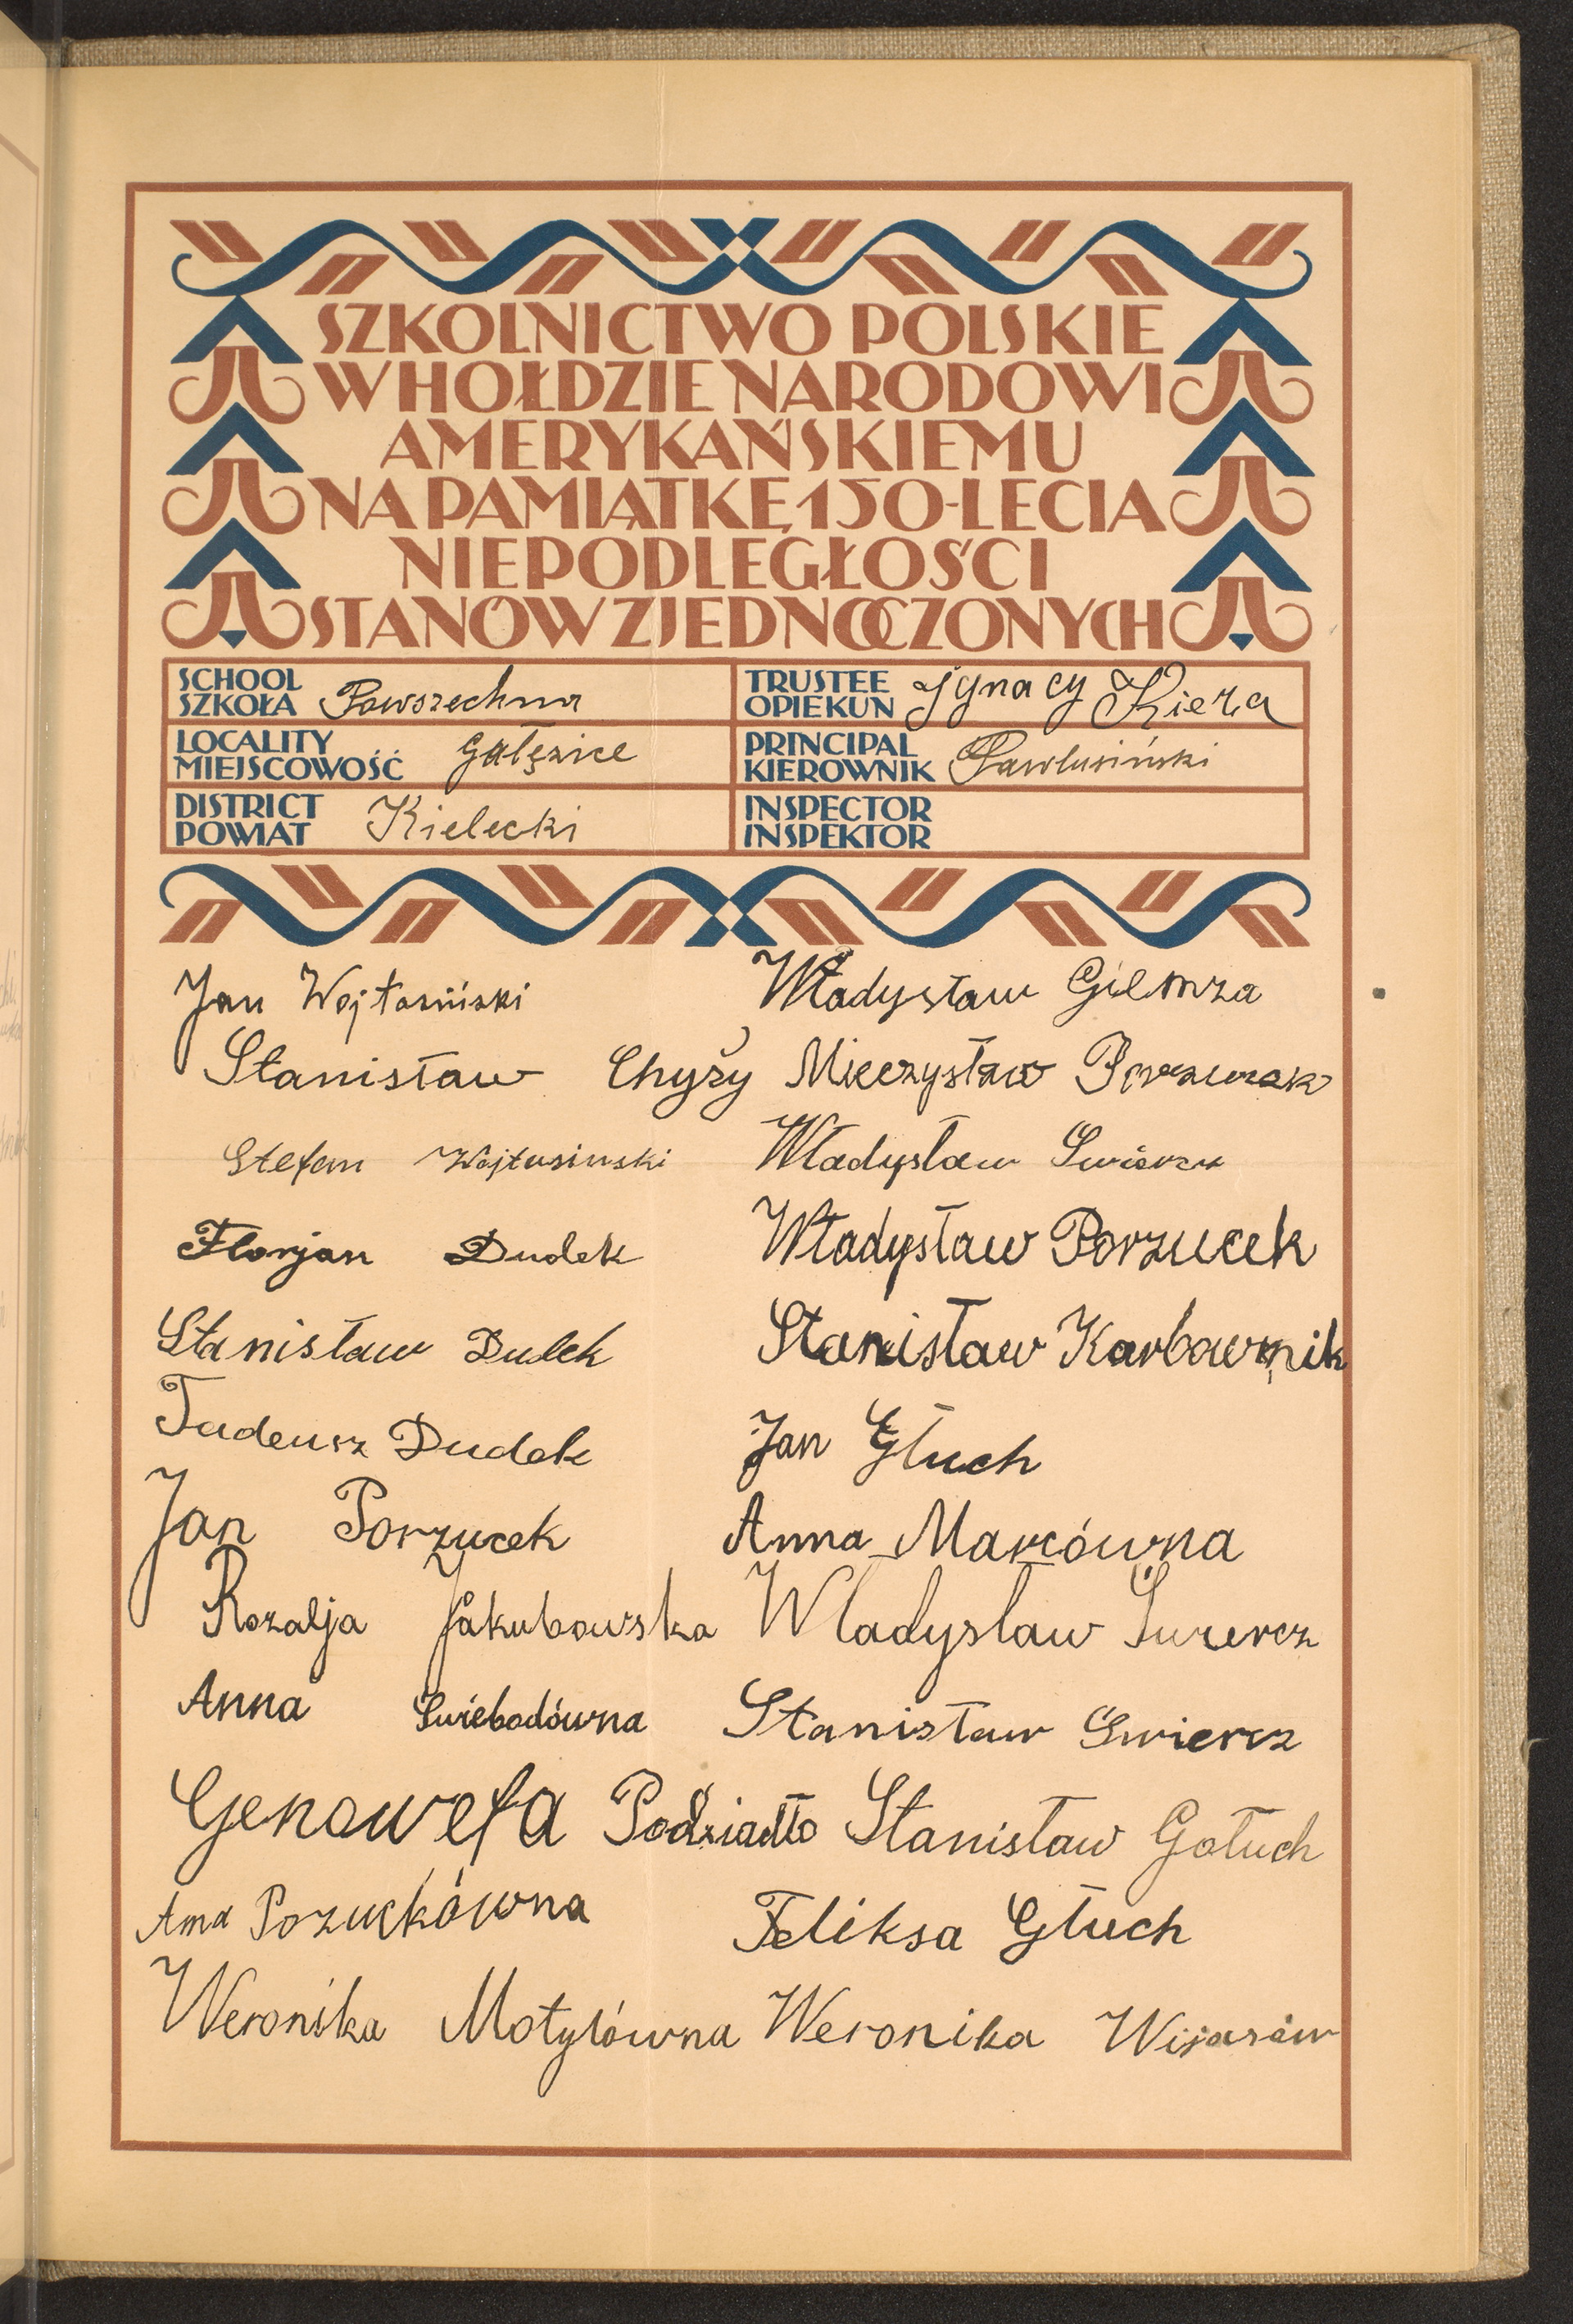 SZKOLNICTWO POLSKIE
W HOŁDZIE NARODOWI
AMERYKAŃSKIEMU
NA PAMIĄTKĘ 150-LECIA
NIEPODLEGŁOŚCI
STANÓW ZJEDNOCZONYCH
SCHOOL
SZKOŁA Powszechna
TRUSTEE
OPIEKUN Ignacy Kiera
LOCALITY
MIEJSCOWOŚĆ Gałęzice
PRINCIPAL
KIEROWNIK Pawlusiński
DISTRICT
POWIAT Kielecki
INSPECTOR
INSPEKTOR
Jan Wojtasiński
Władysław Gilmza
Stanisław Chyży
Mieczysław
Stefan Wojtusinski
Władysław
Florjan Dudek
Władysław Porzucek
Stanisław Dulek
Stanisław Karbownik
Tadeusz Dudek
Jan Głuch
Jan Porzucek
Anna Marcówna
Rozalja Jakubowska
Wladyslaw Swiercz
Anna Świebodówna
Stanisław Swiercz
Genowefa Podsiadło
Stanisław Gołuch
Anna Pozuckówna
Feliksa Głuch
Weronika Motylówna
Weronika